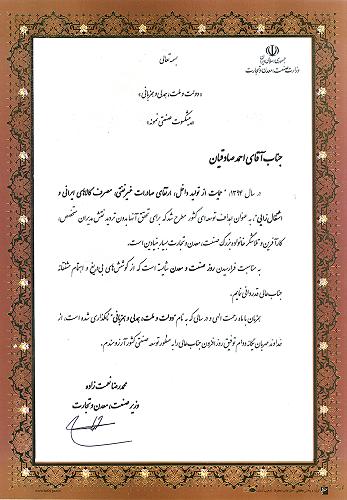 بسمه تعالی
جمهوری اسلامی ایران
وزارت صنعت، معدن و تجارت
«دولت و ملت، همدلی و همزبانی»
«پیشکسوت صنعتی نمونه»
جناب آقای احمد صادقیان
در سال ۱۳۹۴، "حمایت از تولید داخل، ارتقای صادرات غیرنفتی، مصرف کالاهای ایرانی و
اشتغال زایی" به عنوان اهداف توسعه ای کشور مطرح شد که برای تحقق آنها بدون تردید نقش مدیران متخصص،
کارآفرین و تلاشگر خانواده بزرگ صنعت، معدن و تجارت بسیار بنیادین است.
به مناسبت فرارسیدن روز صنعت و معدن شایسته است که از کوشش های بی دریغ و اهتمام مشتاقانه
جناب عالی قدردانی نمایم.
همزمان با ماه رحمت الهی و در سالی که به نام "دولت و ملت، همدلی و همزبانی" نامگذاری شده است، از
خداوند مهربان یگانه دوام توفیق روز افزون جناب عالی را به منظور توسعه صنعتی کشور آرزومندم.
محمدرضا نعمت زاده
وزیر صنعت، معدن و تجارت